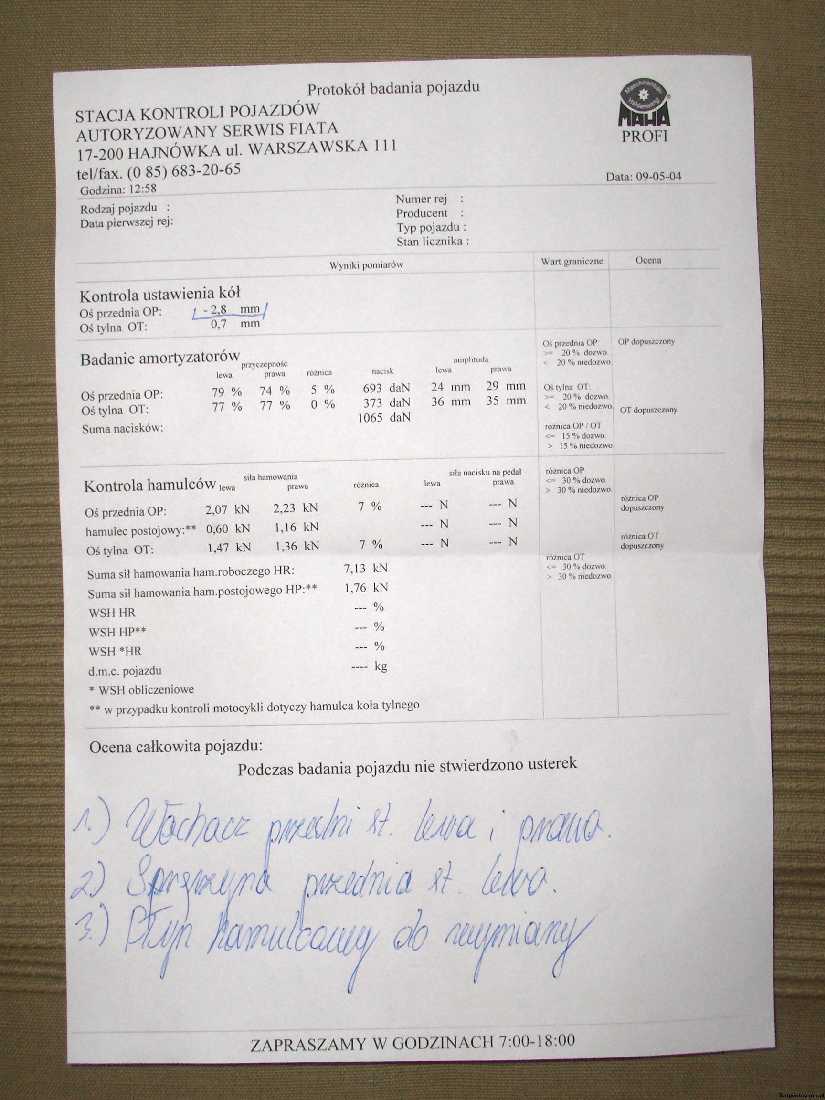 Protokół badania pojazdu
STACJA KONTROLI POJAZDÓW
AUTORYZOWANY SERWIS FIATA
17-200 HAJNÓWKA ul. WARSZAWSKA 111
tel/fax. (0 85) 683-20-65
MAHA
PROFI
Godzina: 12:58
Data: 09-05-04
Rodzaj pojazdu :
Data pierwszej rej:
Numer rej :
Producent :
Typ pojazdu :
Stan licznika :
Wyniki pomiarów Wart graniczne Ocena
Kontrola ustawienia kół
Oś przednia OP: - 2,8 mm
Oś tylna OT: 0,7 mm
Badanie amortyzatorów
przyczepność amplituda
lewa prawa różnica nacisk lewa prawa
Oś przednia OP: 79 % 74 % 5 % 693 daN 24 mm 29 mm
Oś tylna OT: 77 % 77 % 0 % 373 daN 36 mm 35 mm
Suma nacisków: 1065 daN
Oś przednia OP
>= 20 % dozwo.
< 20 % niedozwo.
Oś tylna OT:
>= 20 % dozwo.
< 20 % niedozwo.
różnica OP / OT
<= 15 % dozwo.
> 15 % niedozwo.
OP dopuszczony
OT dopuszczony
Kontrola hamulców
siła hamowania siła nacisku na pedał
lewa prawa różnica lewa prawa
Oś przednia OP: 2,07 kN 2,23 kN 7 % --- N --- N
hamulec postojowy:** 0,60 kN 1,16 kN --- N --- N
Oś tylna OT: 1,47 kN 1,36 kN 7 % --- N --- N
różnica OP
<= 30 % dozwo.
> 30 % niedozwo.
różnica OP
dopuszczony
różnica OT
dopuszczony
różnica OT
<= 30 % dozwo.
> 30 % niedozwo.
Suma sił hamowania ham.roboczego HR: 7,13 kN
Suma sił hamowania ham.postojowego HP:** 1,76 kN
WSH HR --- %
WSH HP** --- %
WSH *HR --- %
d.m.c. pojazdu ---- kg
* WSH obliczeniowe
** w przypadku kontroli motocykli dotyczy hamulca koła tylnego
Ocena całkowita pojazdu:
Podczas badania pojazdu nie stwierdzono usterek
1.) Wachacz przedni st. lewa i prawa.
2) Sprężyna przednia st. lewa.
3.) Płyn hamulcowy do wymiany
ZAPRASZAMY W GODZINACH 7:00-18:00